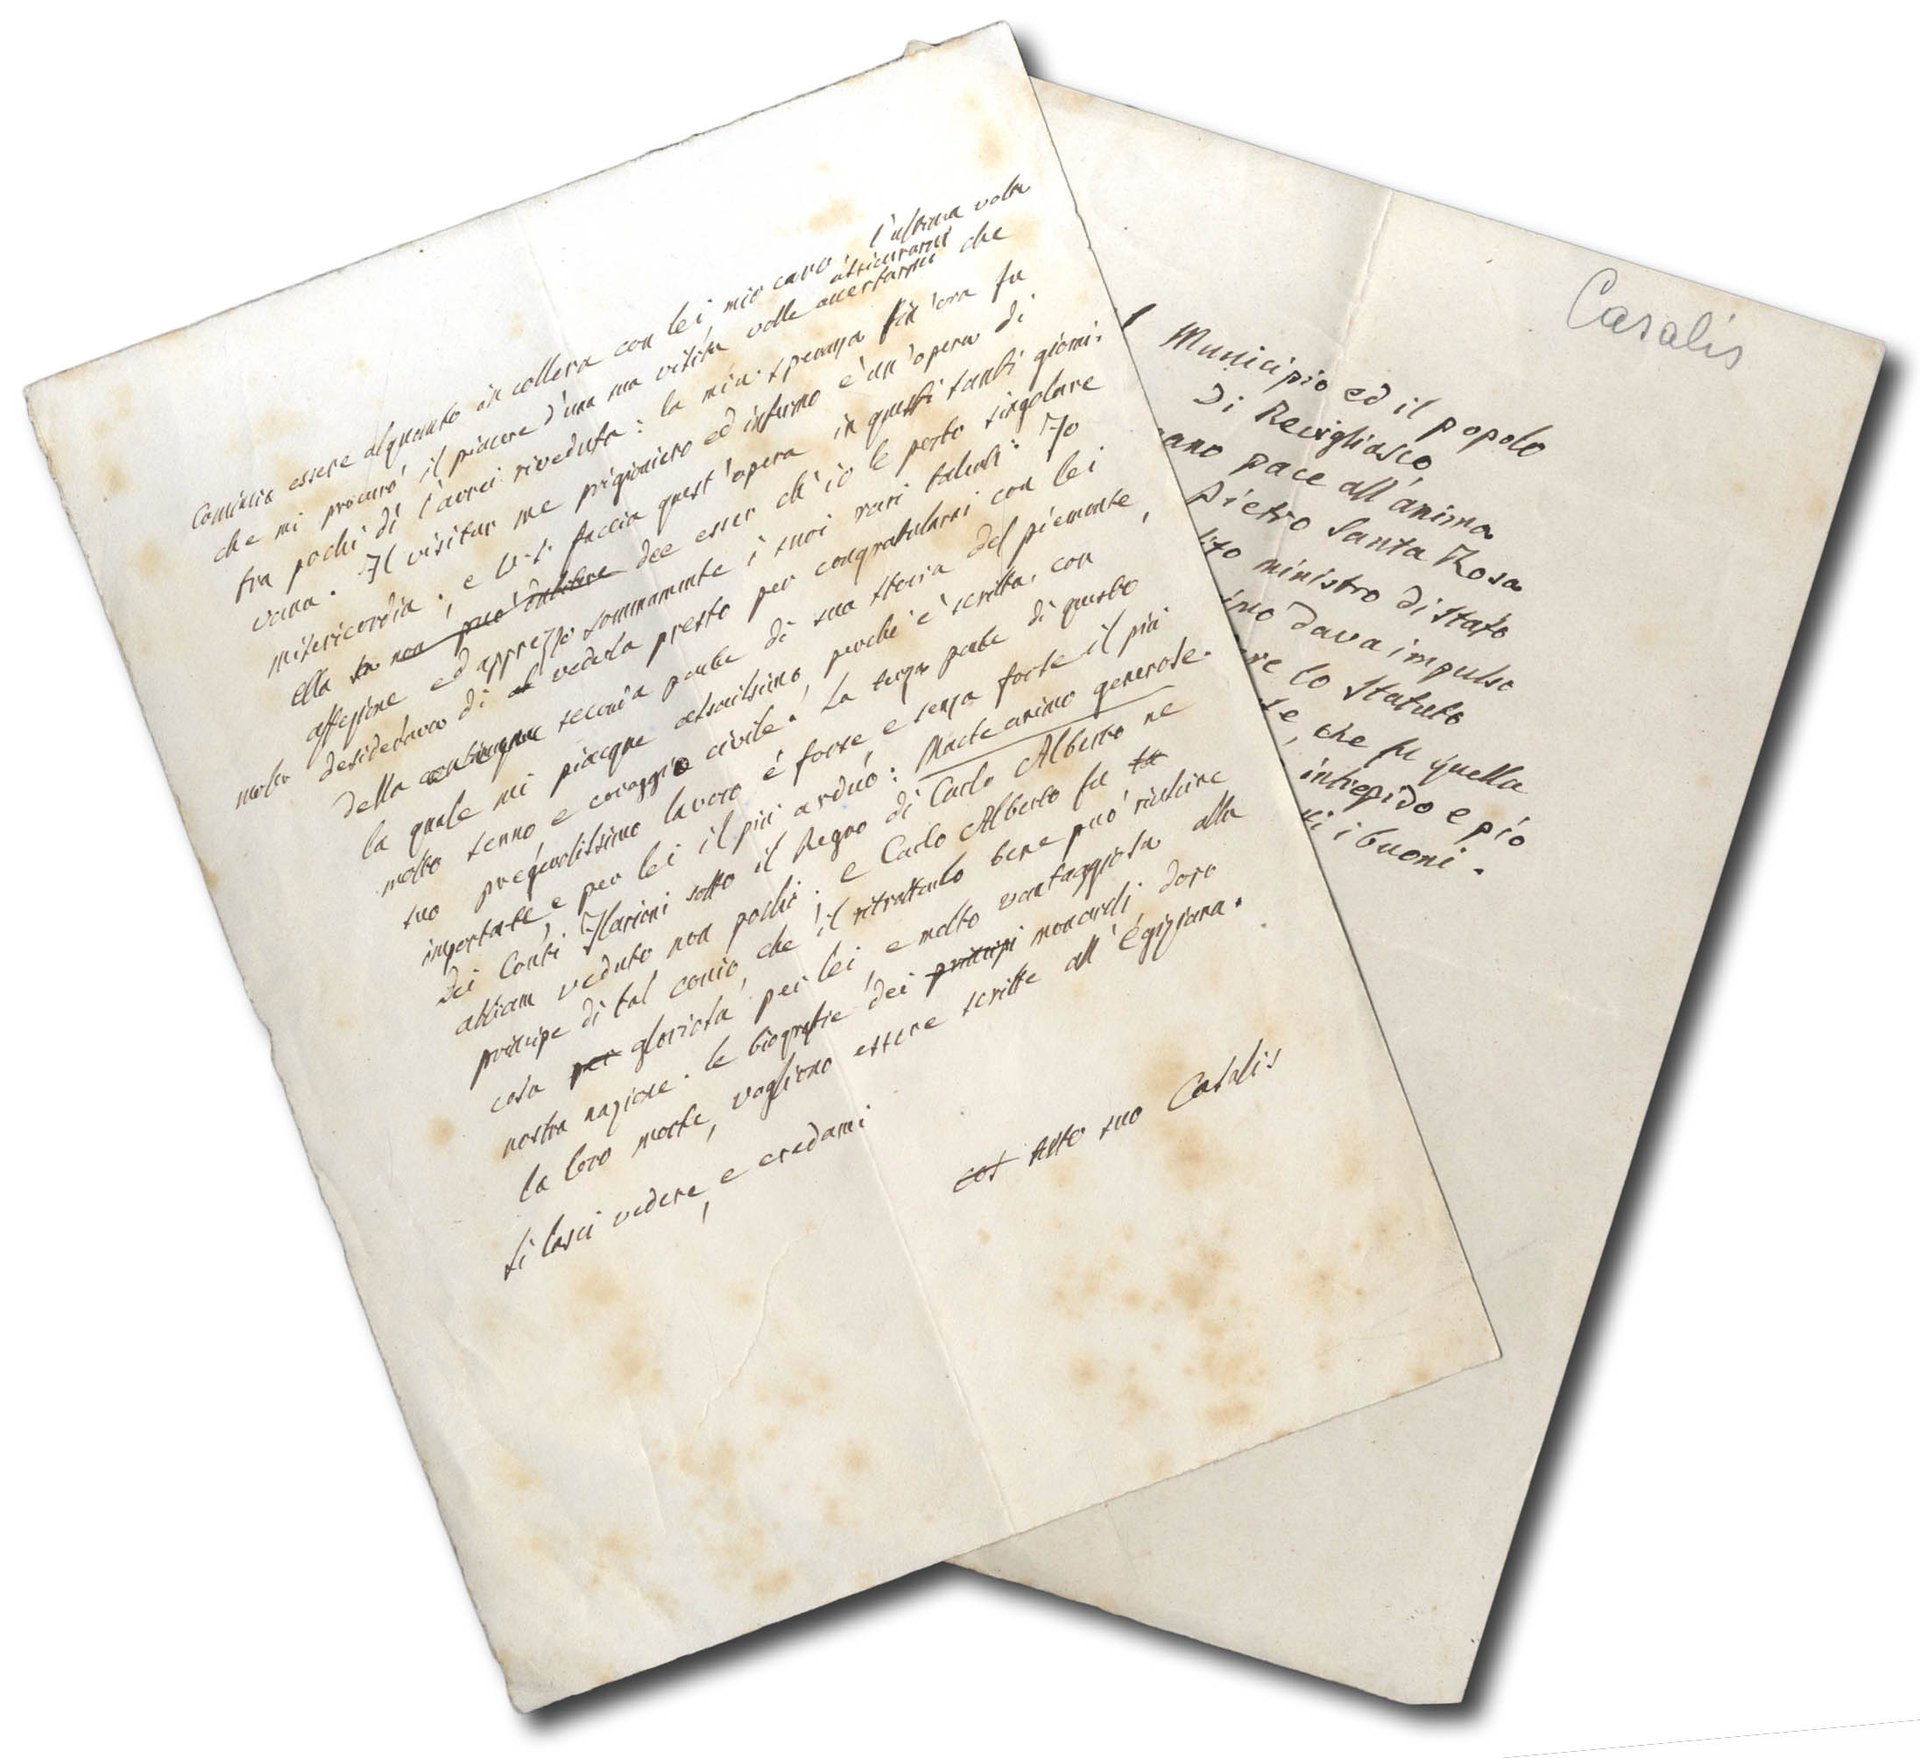 Comincio essere alquanto in collera con lei mio caro, l'ultima volta
che mi procurò il piacere d'una sua visita volle assicurarmi accertarmi che
fra pochi dì l'avrei riveduta: la mia speranza fin'ora fu
vana. Il visitar me prigioniero ed infermo è un'opera di
misericordia; e V. S. faccia quest'opera in questi santi giorni.
Ella non può dee esser ch'io le porto singolare
affezione ed apprezzo sommamente i suoi rari talenti: Io
molto desiderava di vederla presto per congratularmi con lei
della seconda parte di sua storia del piemonte,
la quale mi piacque assaissimo, perchè è scritta con
molto senno e coraggio civile. La terza parte di questo
suo pregevolissimo lavoro è forse e senza forse il più
importante, e per lei il più arduo: Macte animo generose.
Dei Conti Ilarioni sotto il Regno di Carlo Alberto ne
abbiam veduto non pochi; e Carlo Alberto fu
principe di tal conio, che il ritrattarlo bene può riuscire
cosa per gloriosa per lei, e molto vantaggiosa alla
nostra nazione. le biografie dei principi monarchi dopo
la loro morte, vogliono essere scritte all'Egiziana.
Si lasci vedere, e credami
tutto suo Casalis
Casalis
Municipio ed il popolo
Di Revigliasco
ano pace all'anima
Pietro Santa Rosa
ministro di Stato
ino dava impulso
re lo Statuto
te, che fu quella
intrepido e pio
ti i buoni.